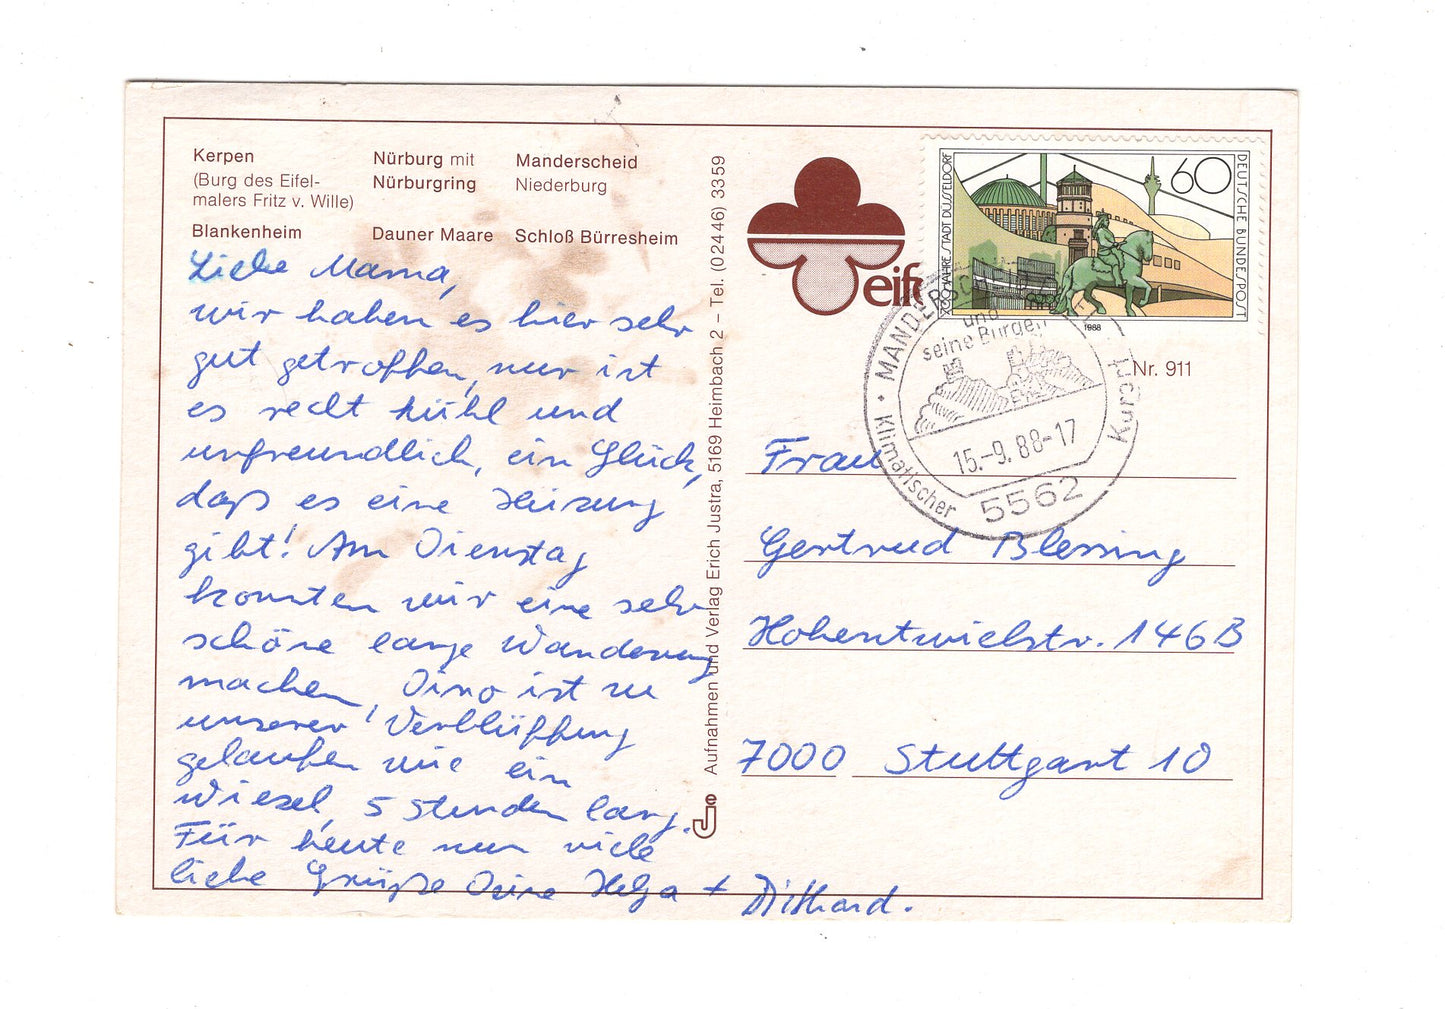 Kerpen
(Burg des Eifel-
malers Fritz v. Wille)
Nürburg mit
Nürburgring
Manderscheid
Niederburg
Blankenheim
Dauner Maare
Schloß Bürresheim
Liebe Mama,
wir haben es hier sehr
gut getroffen, nur ist
es recht kühl und
unfreundlich, ein Glück,
daß es eine Heizung
gibt! Am Dienstag
konnten wir eine sehr
schöne lange Wanderung
machen, Dino ist zu
unserer Verblüffung
gelaufen wie ein
Wiesel, 5 Stunden lang.
Für heute nur viele
liebe Grüße Deine Helga + Dithard.
Aufnahmen und Verlag Erich Justra, 5169 Heimbach 2 – Tel. (02446) 3359
eife
700 JAHRE STADT DÜSSELDORF
60
DEUTSCHE BUNDESPOST
1988
MANDERSCHEID
und
seine Burgen
15.-9.88-17
5562
Klimatischer
Kurort
Nr. 911
Frau
Gertrud Blessing
Hohentwielstr. 146B
7000 Stuttgart 10